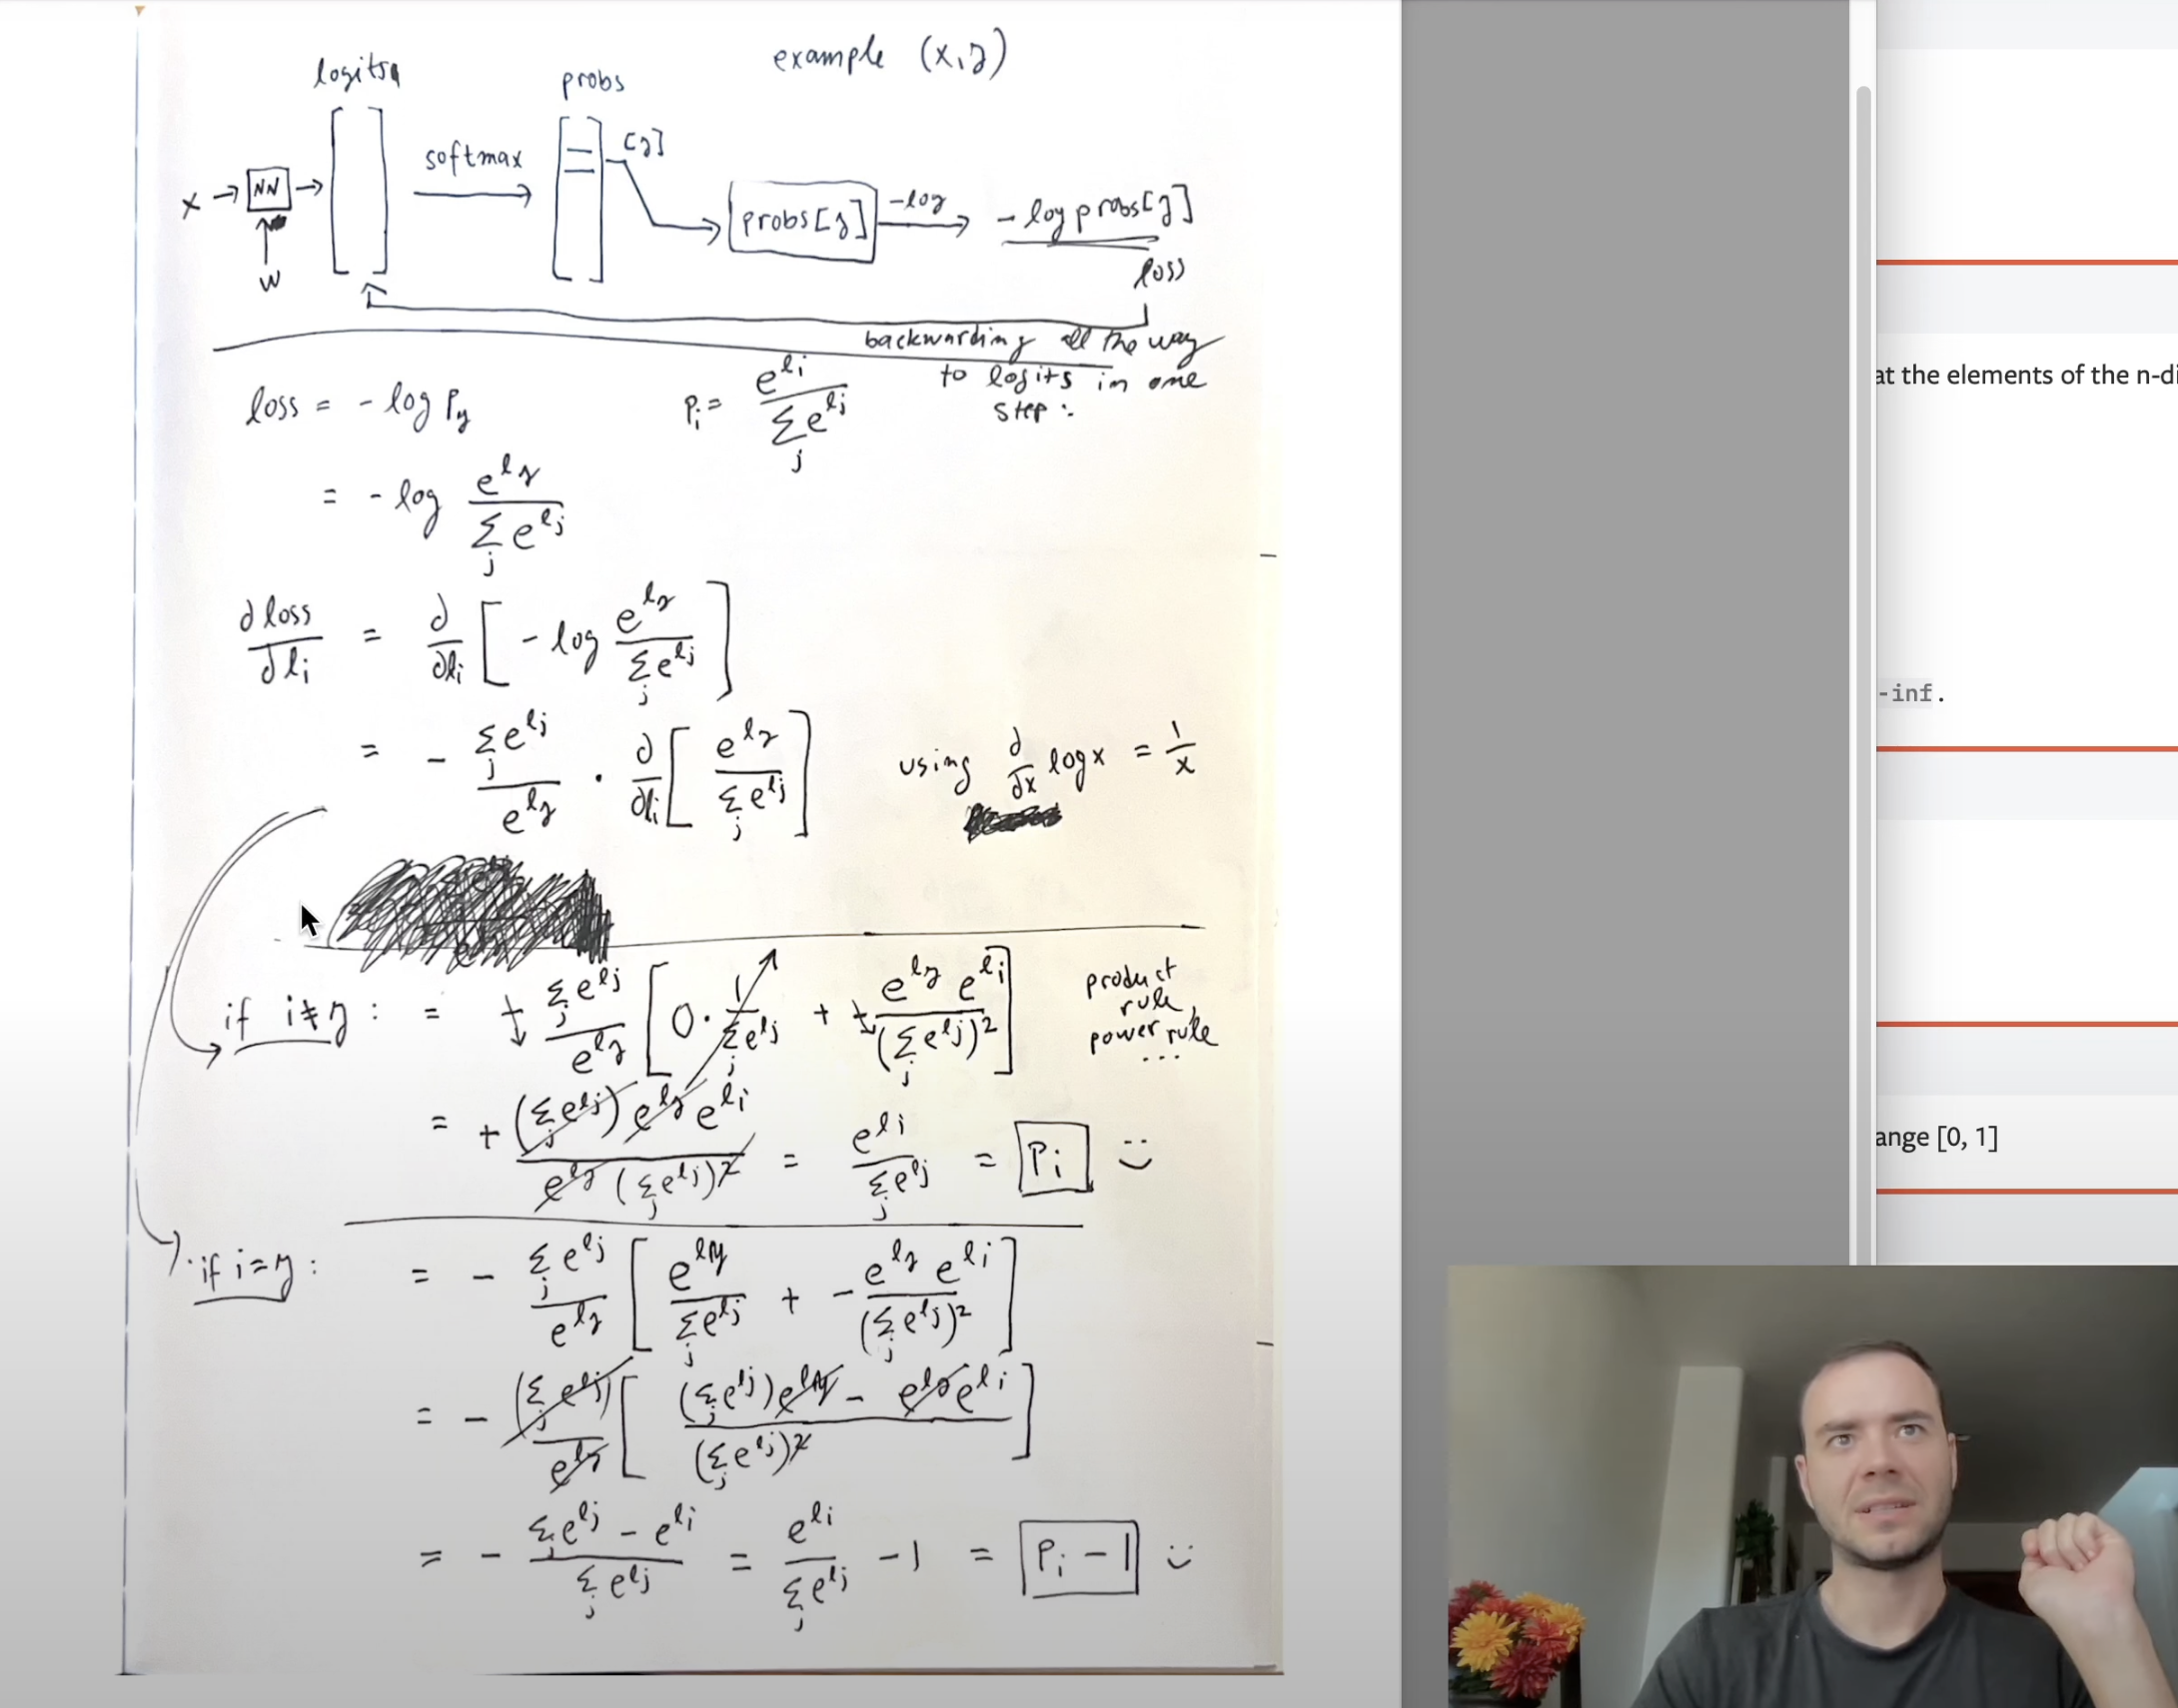 example (x,y)
logits
probs
softmax
[y]
x → NN → 
w
probs[y]
-log
- log probs[y]
loss
backwarding all the way
to logits in one
step:
loss = - log P_y
P_i = e^{l_i} / Σ_j e^{l_j}
= - log e^{l_y} / Σ_j e^{l_j}
∂loss / ∂l_i = ∂/∂l_i [ - log e^{l_y} / Σ_j e^{l_j} ]
= - Σ_j e^{l_j} / e^{l_y} · ∂/∂l_i [ e^{l_y} / Σ_j e^{l_j} ]
using ∂/∂x log x = 1/x
if i≠y : = + Σ_j e^{l_j} / e^{l_y} [ 0 · 1 / Σ_j e^{l_j} + + e^{l_y} e^{l_i} / (Σ_j e^{l_j})^2 ]
product
rule,
power rule
...
= + (Σ_j e^{l_j}) e^{l_y} e^{l_i} / e^{l_y} (Σ_j e^{l_j})^2 = e^{l_i} / Σ_j e^{l_j} = P_i :)
if i=y : = - Σ_j e^{l_j} / e^{l_y} [ e^{l_y} / Σ_j e^{l_j} + - e^{l_y} e^{l_i} / (Σ_j e^{l_j})^2 ]
= - (Σ_j e^{l_j}) / e^{l_y} [ (Σ_j e^{l_j}) e^{l_y} - e^{l_y} e^{l_i} / (Σ_j e^{l_j})^2 ]
= - Σ_j e^{l_j} - e^{l_i} / Σ_j e^{l_j} = e^{l_i} / Σ_j e^{l_j} - 1 = P_i - 1 :)
at the elements of the n-di
-inf.
ange [0, 1]